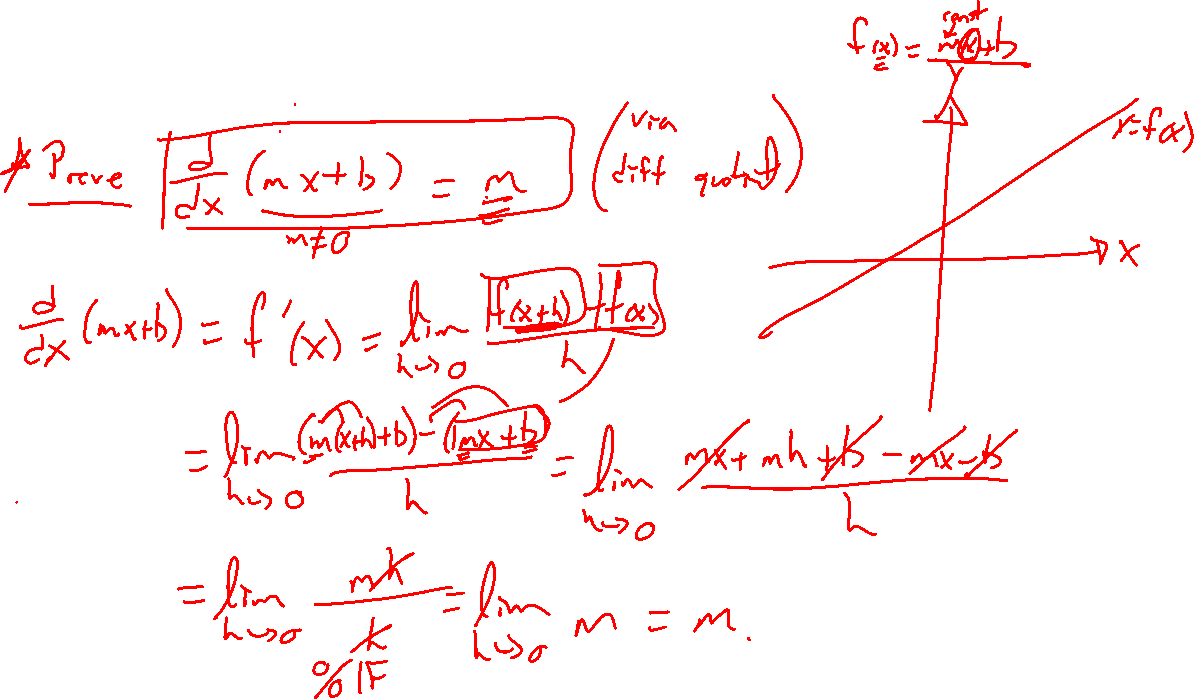 const
f(x) = mx+b
Y
* Prove d/dx (mx+b) = m (via diff quotient)
m≠0
Y=f(x)
X
d/dx (mx+b) = f'(x) = lim h→0 (f(x+h) - f(x))/h
= lim h→0 ((m(x+h)+b) - (1mx+b))/h = lim h→0 (mx + mh + b - mx - b)/h
= lim h→0 mh/h = lim h→0 m = m.
0/0 IF